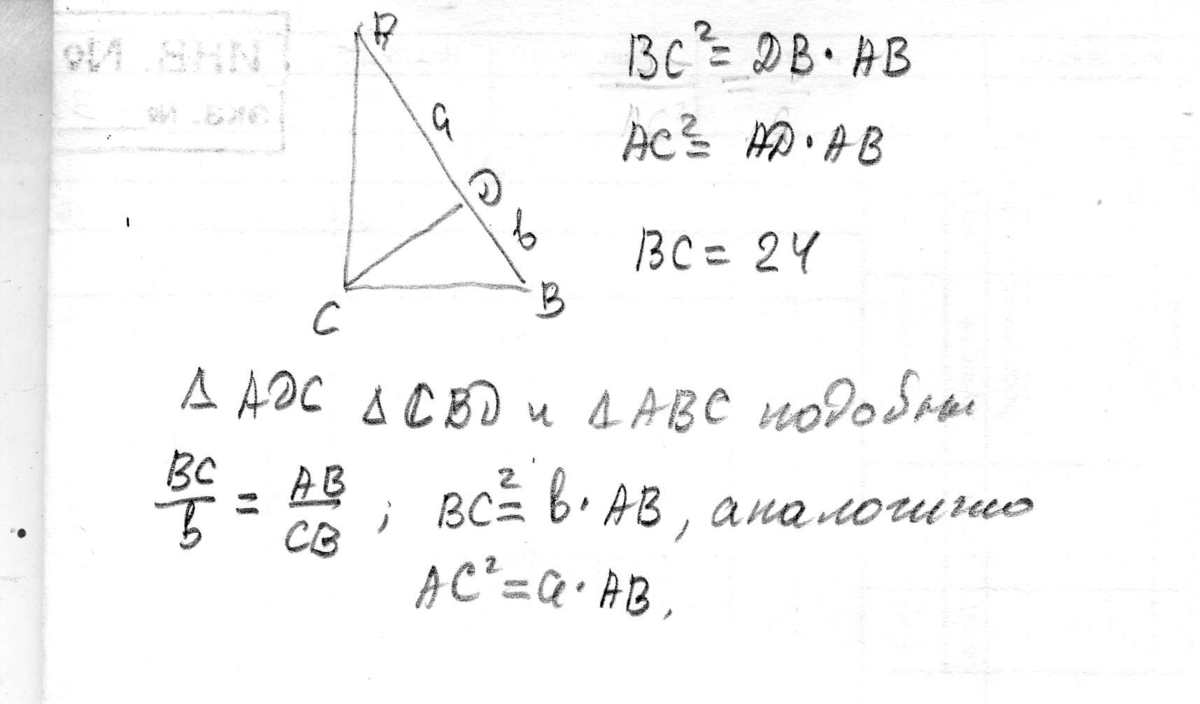 A
a
D
b
C
B
BC² = DB · AB
AC² = AD · AB
BC = 24
Δ ADC Δ CBD и Δ ABC подобны
BC/b = AB/CB ; BC² = b · AB, аналогично
AC² = a · AB,
ИНВ. №
экз. №